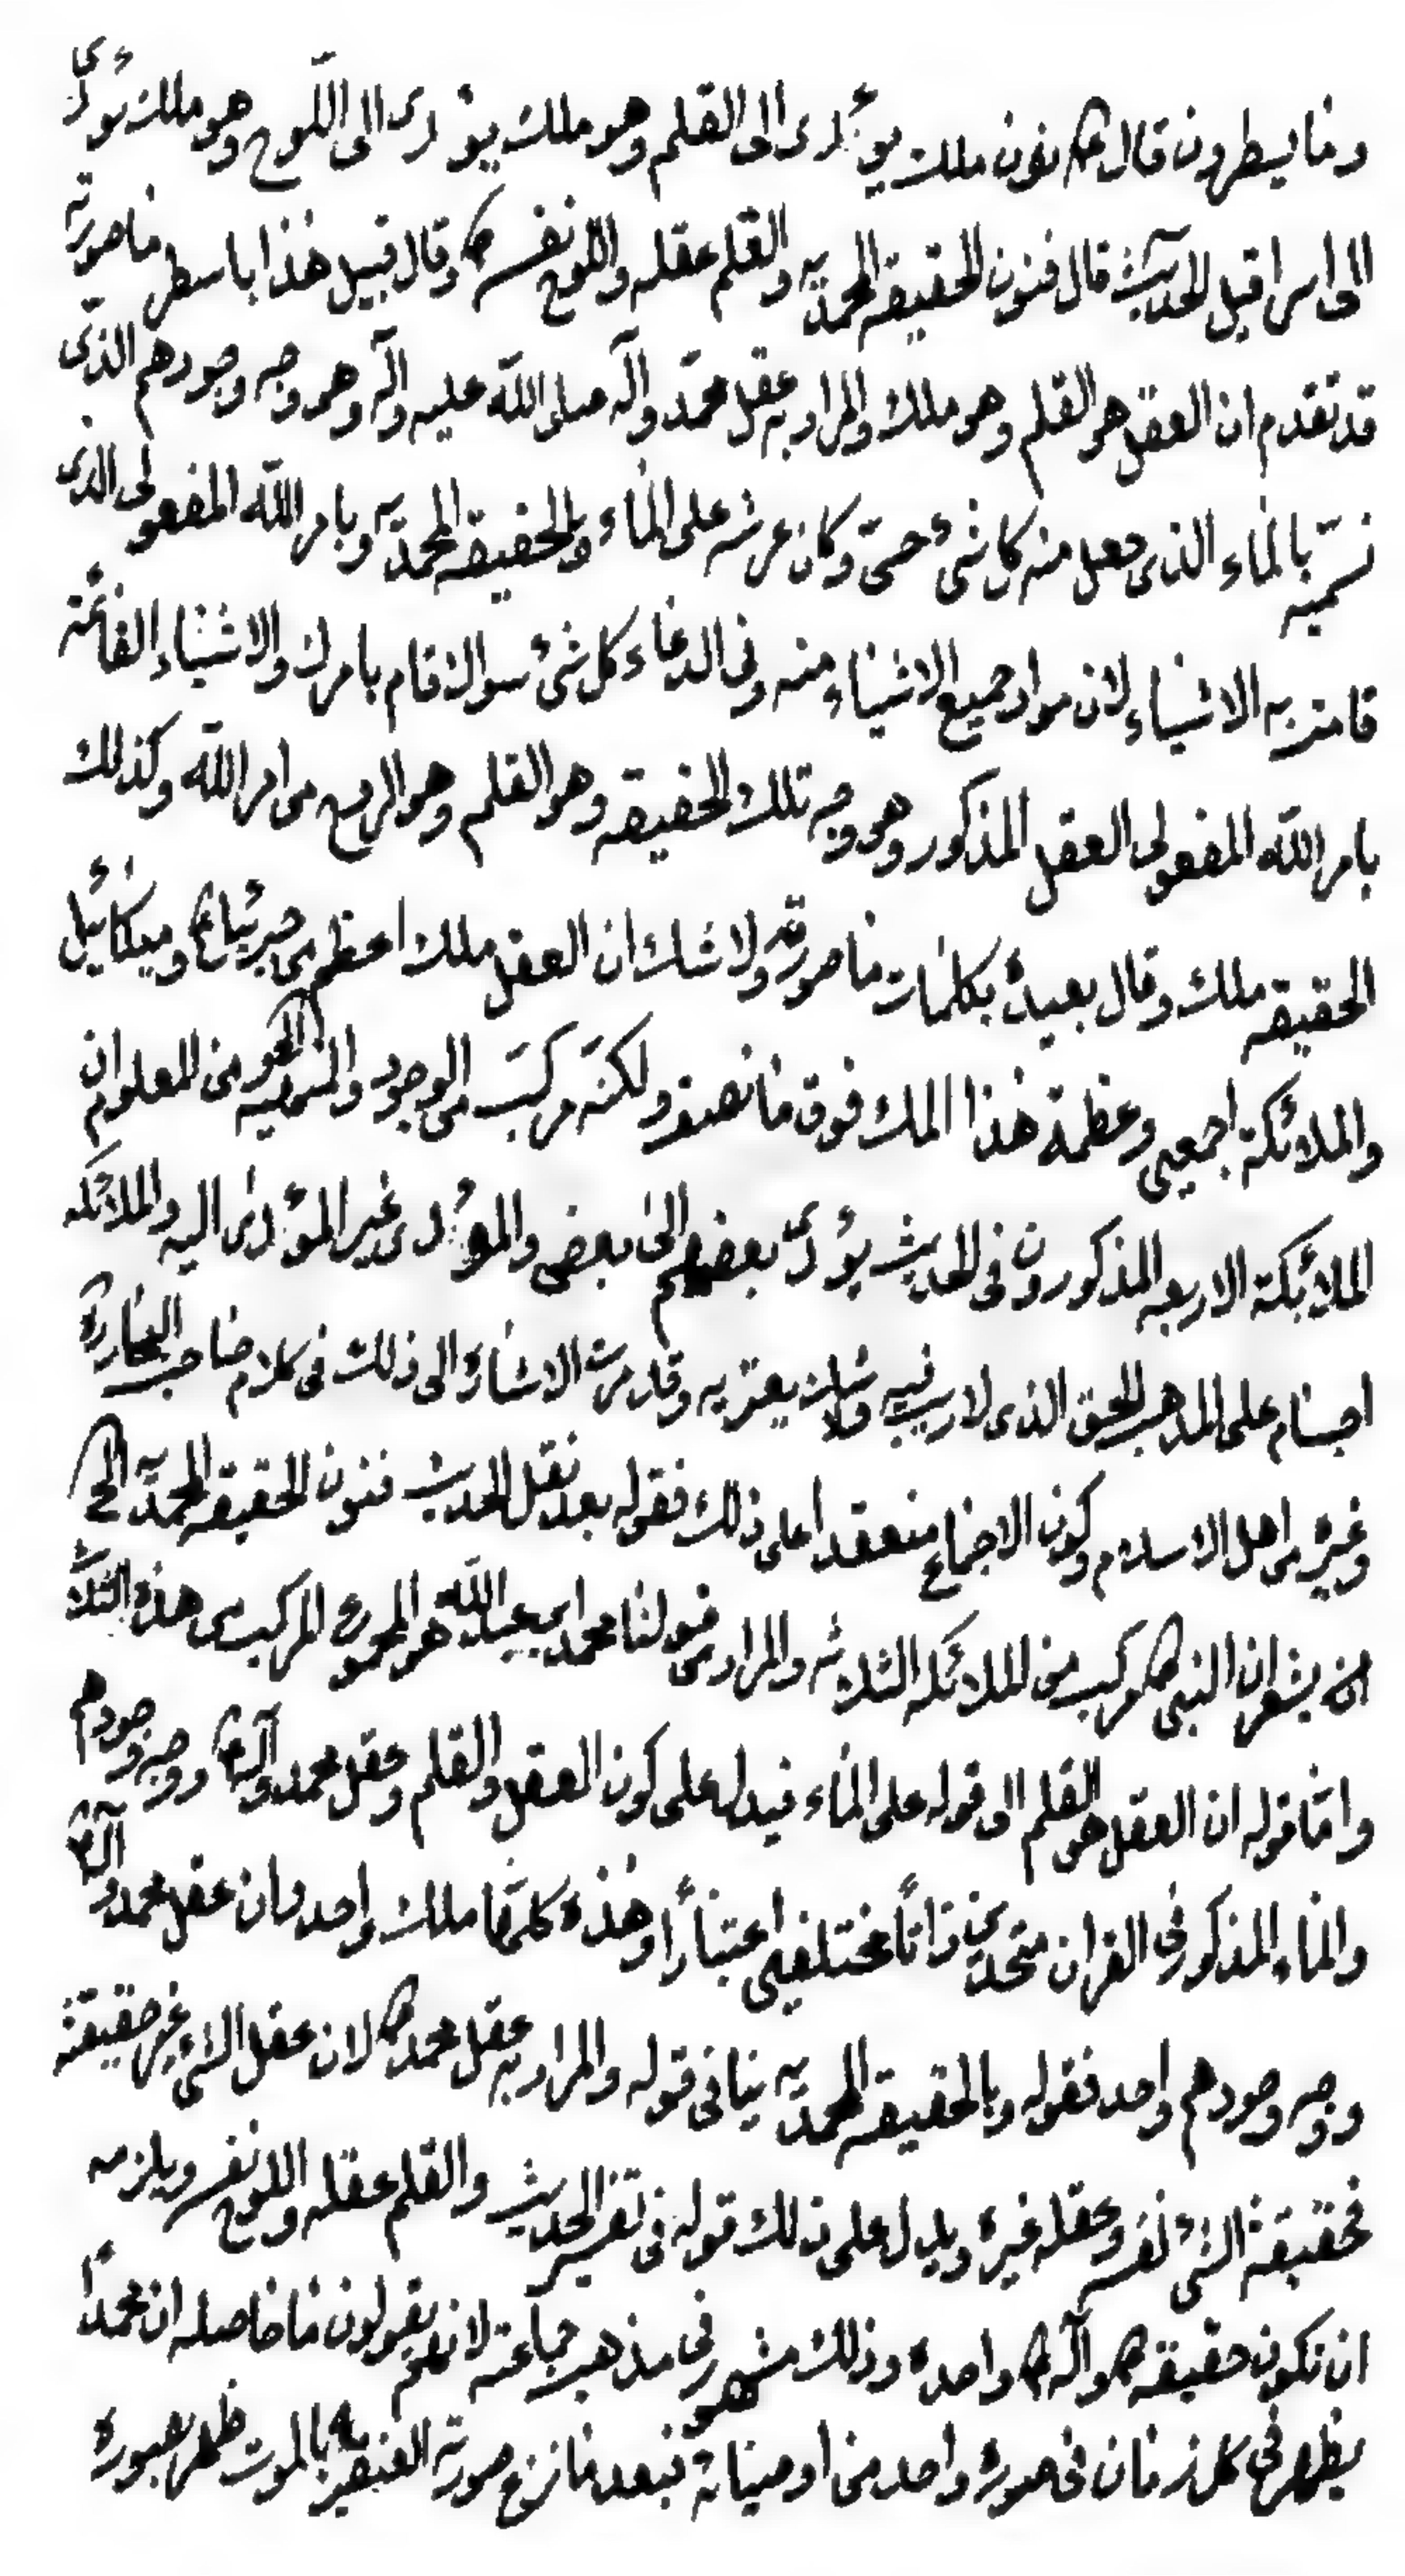 وما يسطرون قال ع نون ملك يؤدى الى القلم وهو ملك يؤدى الى اللوح وهو ملك يؤدى
الى اسرافيل الحديث قال فنون الحقيقة المحمديه والقلم عقله واللوح نفسه ص وقال قبيل هذا باسطر ما صورته
قد تقدم ان العقل هو القلم وهو ملك والمراد به عقل محمد وآله صلى الله عليه وآله وهو وجه وجودهم الذى
نسميه بالماء الذى جعل منه كل شئ حىّ وكان عرشه على الماء وبالحقيقة المحمديه وبامر الله المفعولى الذى
قامت به الاشياء لان مواد جميع الاشياء منه وفى الدعاء كل شئ سواك قام بامرك والاشياء القائمة
بامر الله المفعولى العقل المذكور وهو وجه تلك الحقيقه وهو القلم وهو الروح من امر الله وكذلك
الحقيقه ملك وقال بعيده بكلمات ما صورته ولا شك ان العقل ملك اعظم من جبرئيل ع وميكائيل
والملائكة اجمعين وعظمة هذا الملك فوق ما نصفه ولكنه مركب من الوجود والمهيه الخ ومن المعلوم ان
الملائكة الاربعه المذكورون فى الحديث يؤدى بعضهم الى بعض والمؤدى غير المؤدى اليه والملائكه
اجسام على المذهب الحق الذى لا ريب فيه ولا شك يعتريه وقد مرت الاشارة الى ذلك فى كلام صاحب البحار ره
وغيره من اهل الاسلام وكون الاجماع منعقداً على ذلك فقوله بعد نقل الحديث فنون الحقيقة المحمديه الخ
انه يشعر ان النبى ص مركب من الملائكه الثلاثه والمراد من قولنا محمد ابن عبد الله هو المجموع المركب من هذه الثلاثة
واما قوله ان العقل هو القلم الى قوله على الماء فيدل على كون العقل والقلم وعقل محمد وآله ع ووجه وجودهم
والماء المذكور فى القران متحدين ذاتاً مختلفين اعتباراً وهذه كلها ملك واحد وان عقل محمد وآله ع
ووجه وجودهم واحد فقوله وبالحقيقة المحمديه ينافى قوله والمراد به عقل محمد ص لان عقل الشئ غير حقيقته
فحقيقة الشئ نفسه وعقله غيره ويدل على ذلك قوله فى تفسير الحديث والقلم عقله واللوح نفسه ويلزمه
ان تكون حقيقته ص وآله ع واحده وذلك مشهور فى مذهب جماعته لانهم يقولون ما حاصله ان محمداً
يظهر فى كل زمان فى صورة واحد من اوصيائه فبعد ما نزع صورته العنصريه بالموت ظهر بصورة